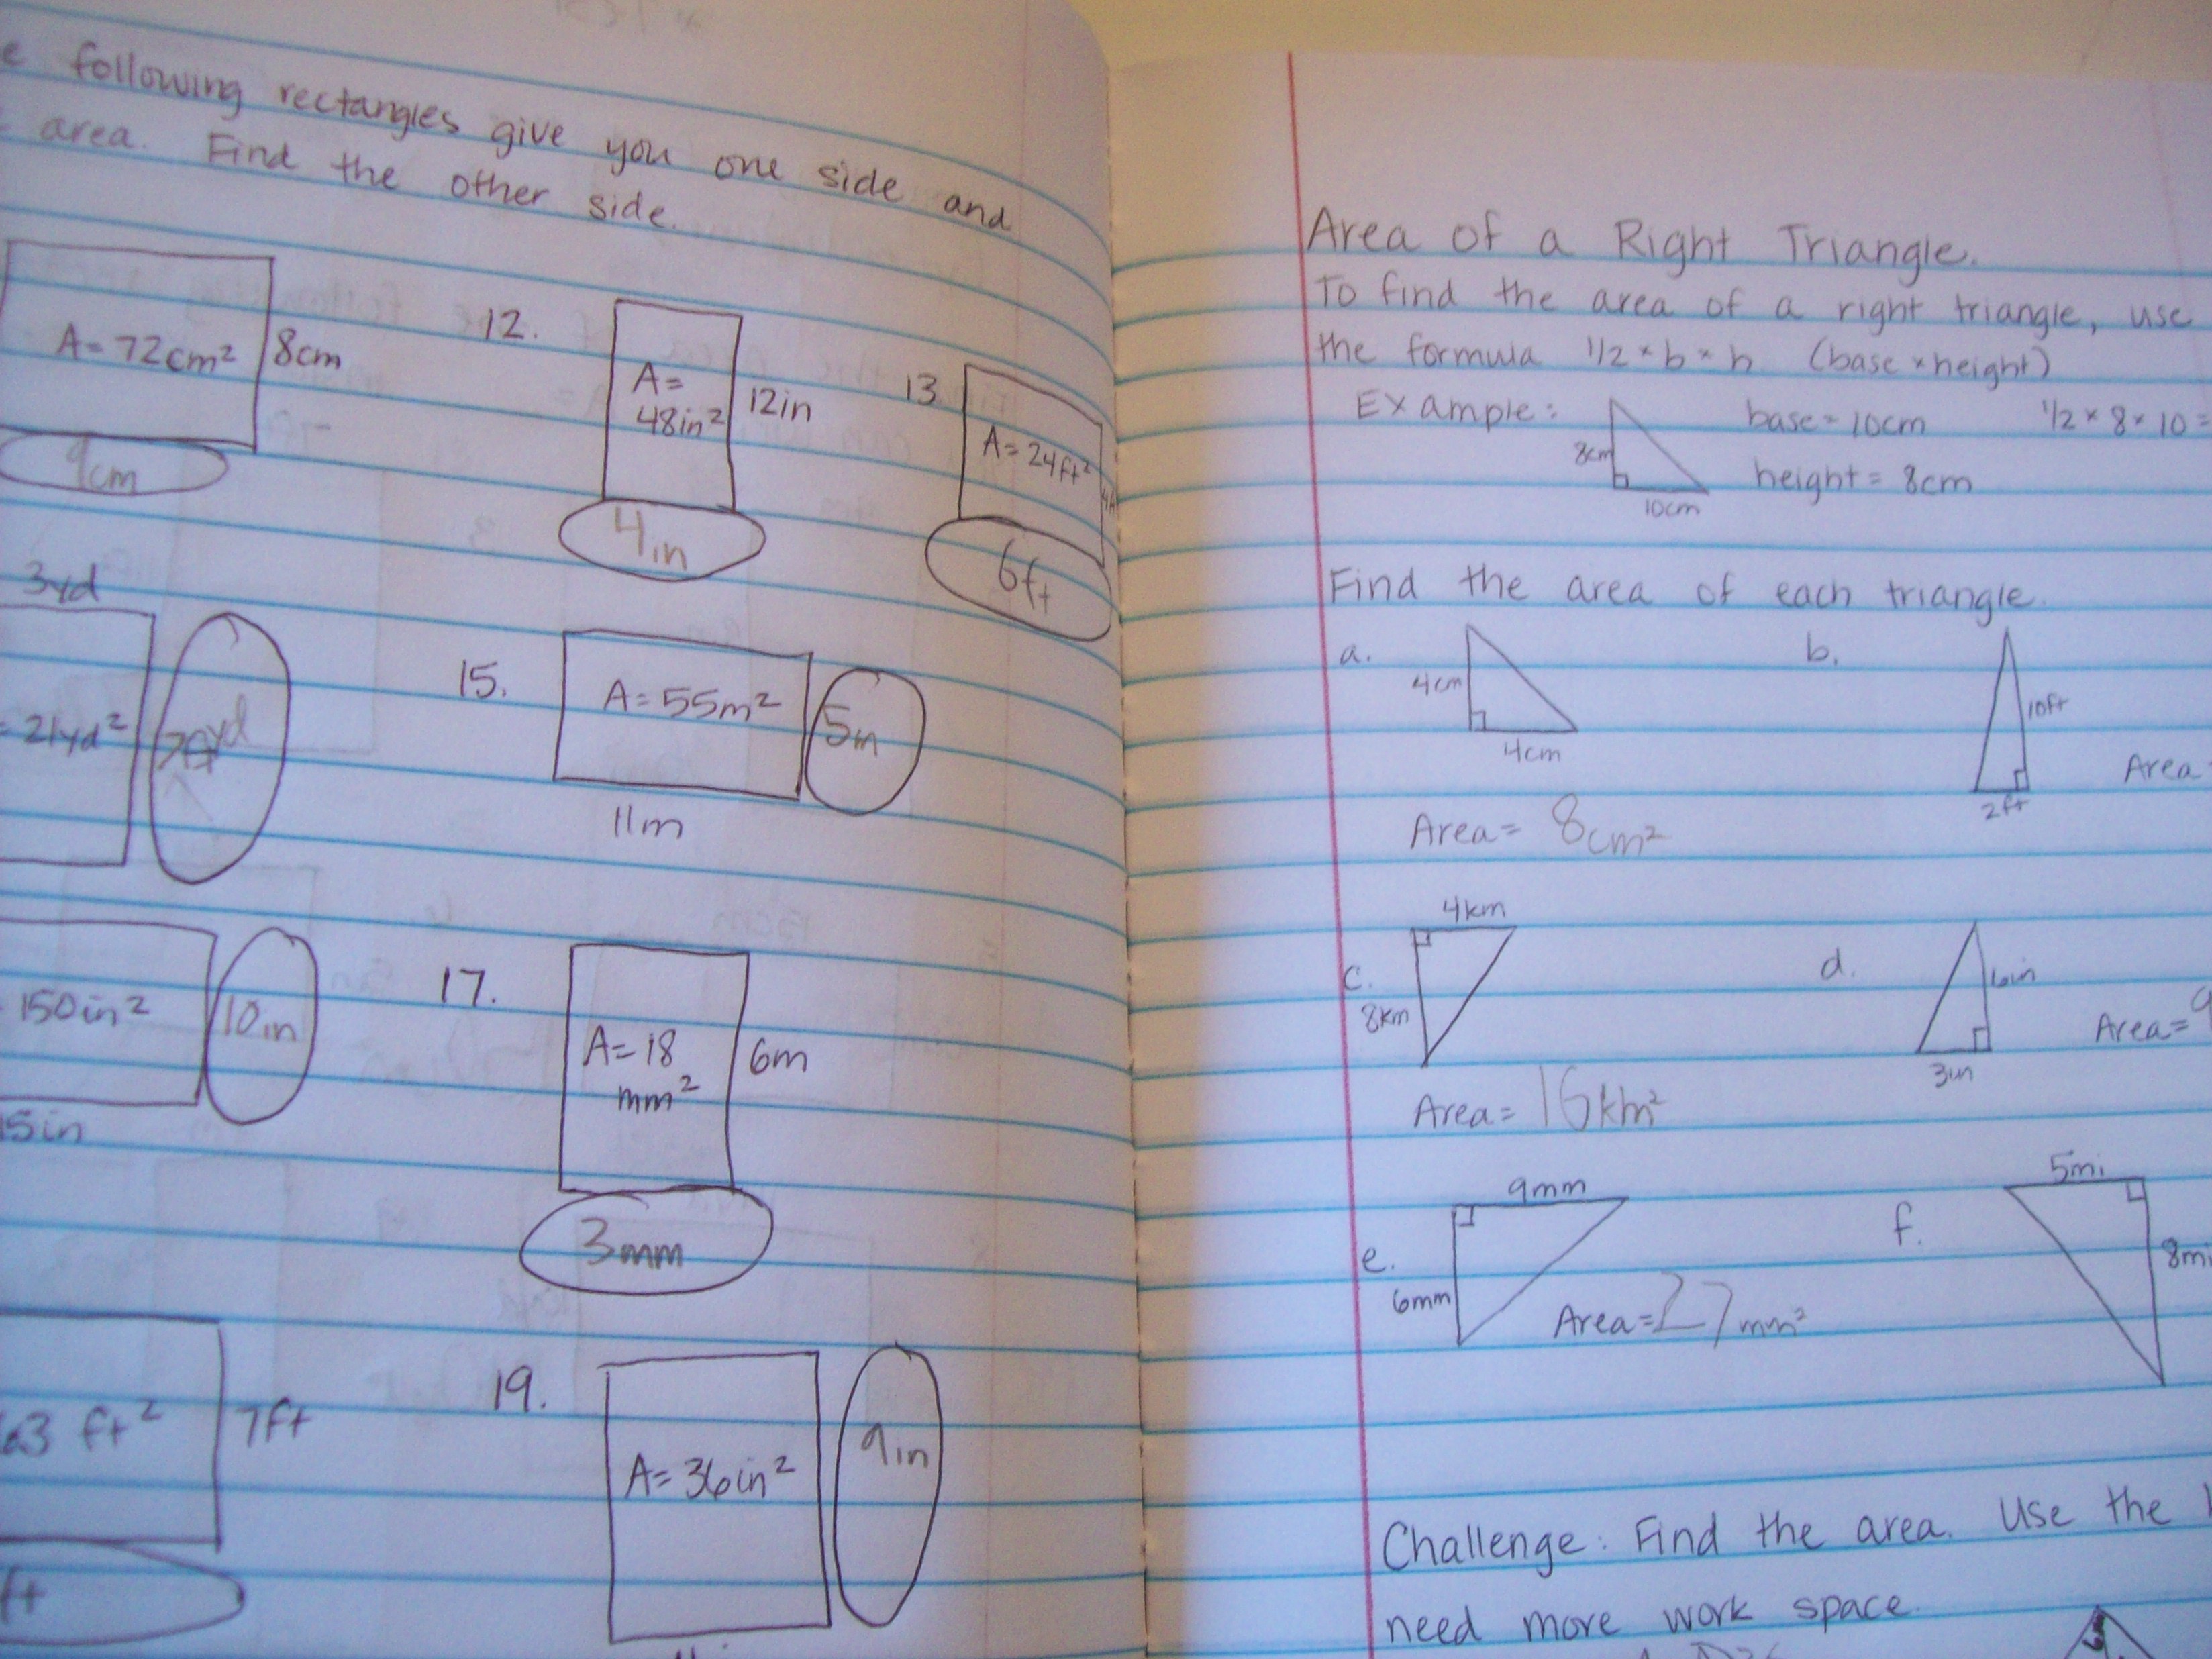 following rectangles give you one side and
area. Find the other side.
A=72cm² 8cm
9cm
12.
A=
48in² 12in
4in
13.
A=24ft²
6ft
3yd
21yd²
yd
15.
A=55m²
5m
11m
150in²
10in
15in
17.
A=18
mm²
6m
3mm
63 ft² 7ft
ft
19.
A=36in²
9in
Area of a Right Triangle.
To find the area of a right triangle, use
the formula 1/2 × b × h (base × height)
Example:
8cm
10cm
base=10cm
height=8cm
1/2 × 8 × 10 =
Find the area of each triangle.
a.
4cm
4cm
Area= 8cm²
b.
10ft
2ft
Area
c.
4km
8km
Area= 16km²
d.
6in
3in
Area=9
e.
9mm
6mm
Area=27mm²
f.
5mi
8mi
Challenge: Find the area. Use the
need more work space.